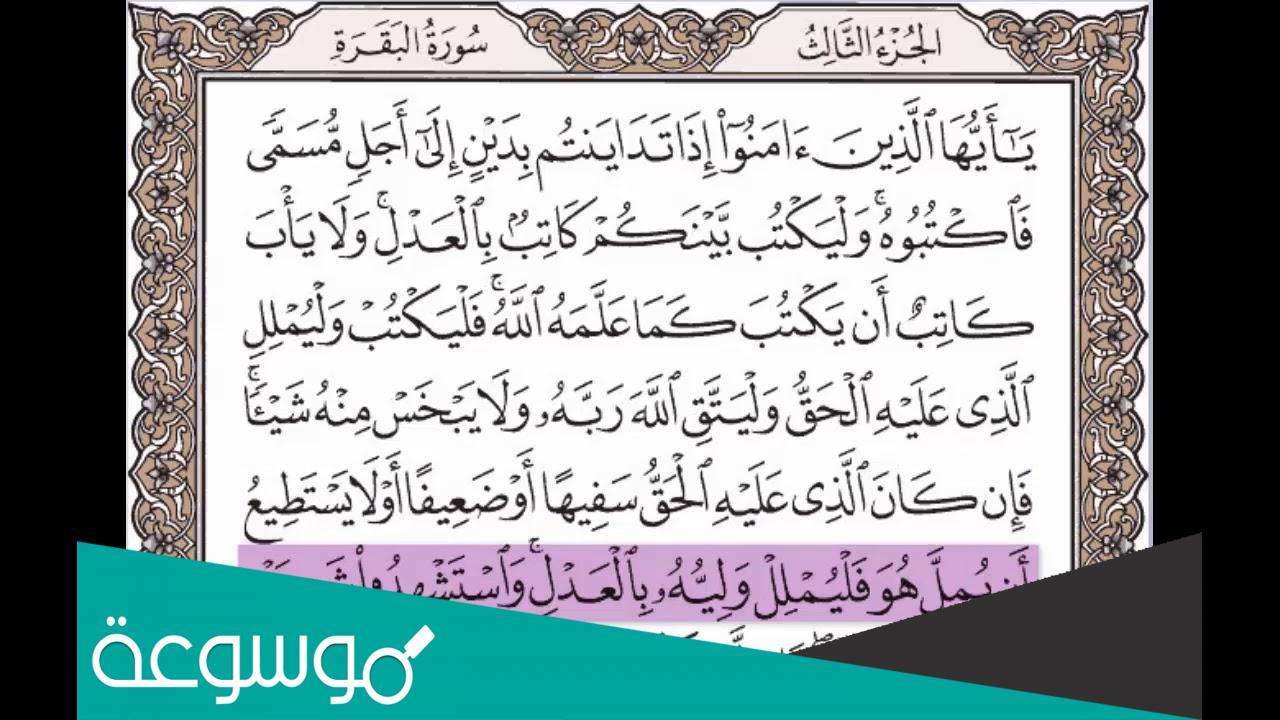 الجُزْءُ الثَّالِثُ
سُورَةُ البَقَرَةِ
يَـٰٓأَيُّهَا ٱلَّذِينَ ءَامَنُوٓاْ إِذَا تَدَايَنتُم بِدَيْنٍ إِلَىٰٓ أَجَلٍ مُّسَمًّى
فَٱكْتُبُوهُۚ وَلْيَكْتُب بَّيْنَكُمْ كَاتِبُۢ بِٱلْعَدْلِۚ وَلَا يَأْبَ
كَاتِبٌ أَن يَكْتُبَ كَمَا عَلَّمَهُ ٱللَّهُۚ فَلْيَكْتُبْ وَلْيُمْلِلِ
ٱلَّذِى عَلَيْهِ ٱلْحَقُّ وَلْيَتَّقِ ٱللَّهَ رَبَّهُۥ وَلَا يَبْخَسْ مِنْهُ شَيْـًٔاۚ
فَإِن كَانَ ٱلَّذِى عَلَيْهِ ٱلْحَقُّ سَفِيهًا أَوْ ضَعِيفًا أَوْ لَا يَسْتَطِيعُ
أَن يُمِلَّ هُوَ فَلْيُمْلِلْ وَلِيُّهُۥ بِٱلْعَدْلِۚ وَٱسْتَشْهِدُواْ
موسوعة